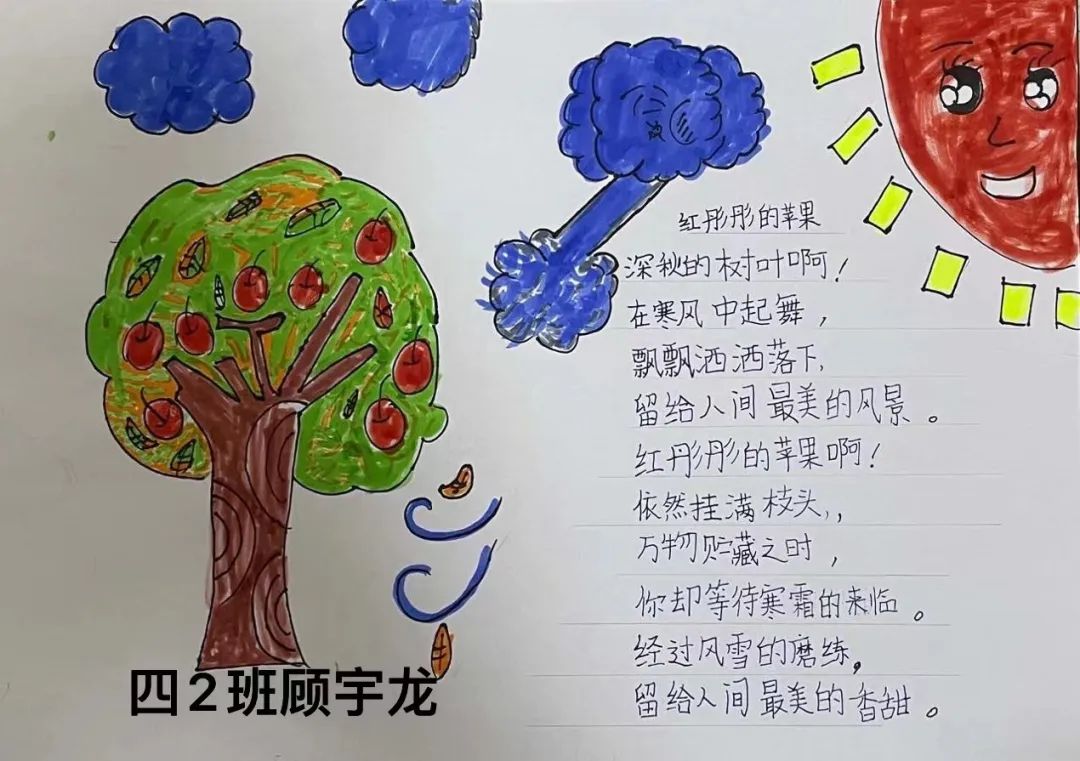 红彤彤的苹果
深秋的树叶啊！
在寒风中起舞，
飘飘洒洒落下，
留给人间最美的风景。
红彤彤的苹果啊！
依然挂满枝头，，
万物贮藏之时，
你却等待寒霜的来临。
经过风雪的磨练，
留给人间最美的香甜。
四2班顾宇龙